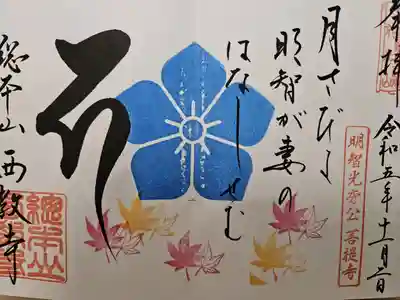 奉拝 令和五年十一月二日
明智光秀公菩提寺
月さびよ
明智が妻の
はなしせむ
総本山 西教寺